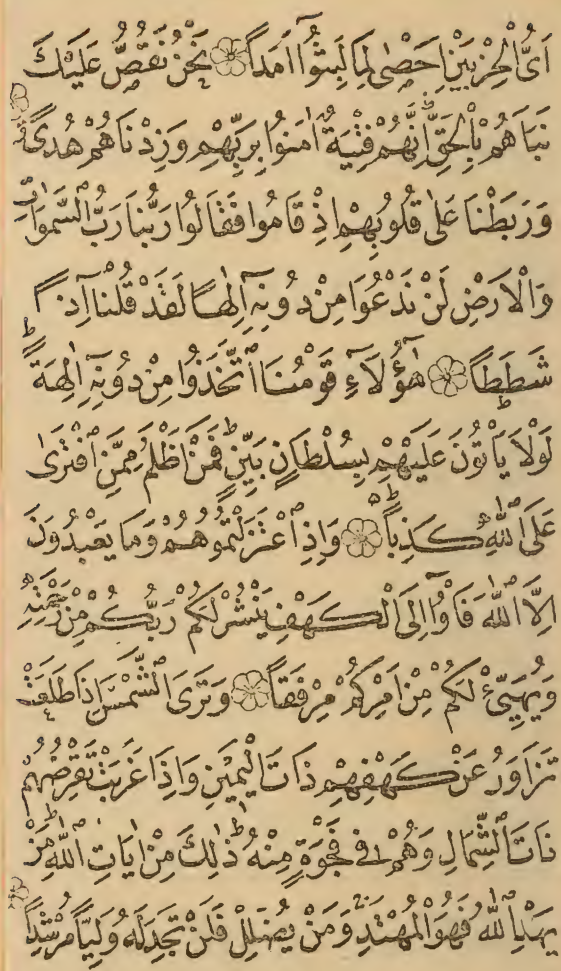 اَىُّ الْحِزْبَيْنِ اَحْصٰى لِمَا لَبِثُٓوا اَمَداً نَحْنُ نَقُصُّ عَلَيْكَ
نَبَاَهُمْ بِالْحَقِّ اِنَّهُمْ فِتْيَةٌ اٰمَنُوا بِرَبِّهِمْ وَزِدْنَاهُمْ هُدًى
وَرَبَطْنَا عَلٰى قُلُوبِهِمْ اِذْ قَامُوا فَقَالُوا رَبُّنَا رَبُّ السَّمٰوَاتِ
وَالْاَرْضِ لَنْ نَدْعُوَا مِنْ دُونِهٖٓ اِلٰهاً لَقَدْ قُلْنَٓا اِذاً
شَطَطاً هٰٓؤُلَٓاءِ قَوْمُنَا اتَّخَذُوا مِنْ دُونِهٖٓ اٰلِهَةً
لَوْلَا يَاْتُونَ عَلَيْهِمْ بِسُلْطَانٍ بَيِّنٍ فَمَنْ اَظْلَمُ مِمَّنِ افْتَرٰى
عَلَى اللّٰهِ كَذِباً وَاِذِ اعْتَزَلْتُمُوهُمْ وَمَا يَعْبُدُونَ
اِلَّا اللّٰهَ فَاْوُٓا اِلَى الْكَهْفِ يَنْشُرْ لَكُمْ رَبُّكُمْ مِنْ رَحْمَتِهٖ
وَيُهَيِّئْ لَكُمْ مِنْ اَمْرِكُمْ مِرْفَقاً وَتَرَى الشَّمْسَ اِذَا طَلَعَتْ
تَزَاوَرُ عَنْ كَهْفِهِمْ ذَاتَ الْيَمِينِ وَاِذَا غَرَبَتْ تَقْرِضُهُمْ
ذَاتَ الشِّمَالِ وَهُمْ فِى فَجْوَةٍ مِنْهُ ذٰلِكَ مِنْ اٰيَاتِ اللّٰهِ مَنْ
يَهْدِ اللّٰهُ فَهُوَ الْمُهْتَدِ وَمَنْ يُضْلِلْ فَلَنْ تَجِدَ لَهُ وَلِيًّا مُرْشِداً